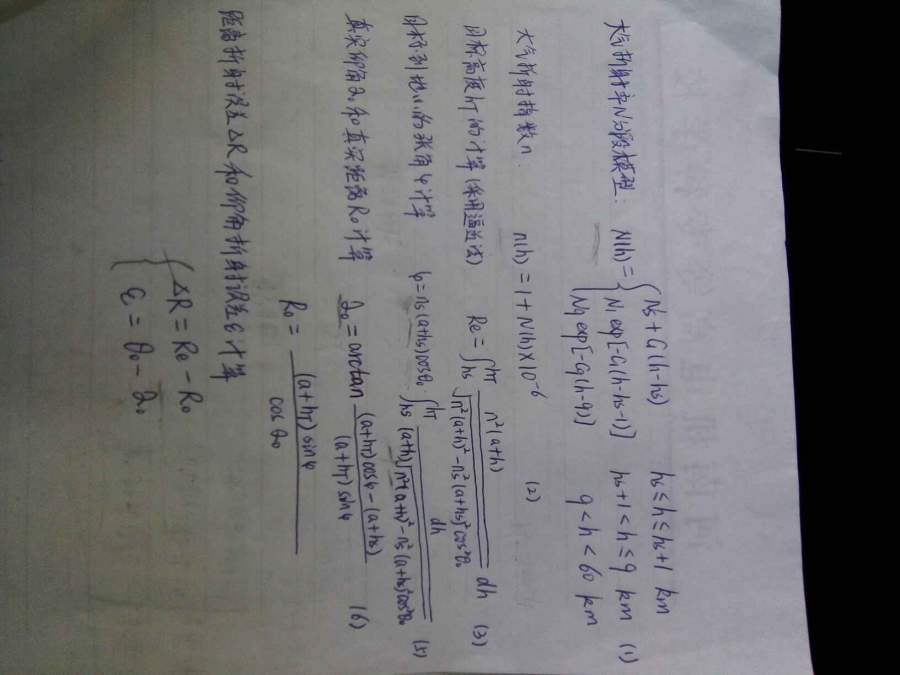 大气折射率N分段模型： N(h) = { Ns + G(h-hs)    hs ≤ h ≤ hs+1 km
N1 exp[-C1(h-hs-1)]    hs+1 < h ≤ 9 km    (1)
N9 exp[-C9(h-9)]    9 < h < 60 km
大气折射指数n：    n(h) = 1 + N(h)×10^-6    (2)
目标高度hT的计算（采用逼近法）    Re = ∫_hs^hT n²(a+h) / √(n²(a+h)² - ns²(a+hs)²cos²θ0) dh    (3)
目标到地心的张角φ计算    φ = ns(a+hs)cosθ0 · ∫_hs^hT dh / ((a+h)√(n²(a+h)² - ns²(a+hs)²cos²θ0))    (5)
真实仰角α0和真实距离R0计算    α0 = arctan ((a+hT)cosφ - (a+hs)) / ((a+hT)sinφ)    (6)
R0 = (a+hT)sinφ / cosα0
距离折射误差△R和仰角折射误差ε计算
{ △R = Re - R0
ε = θ0 - α0